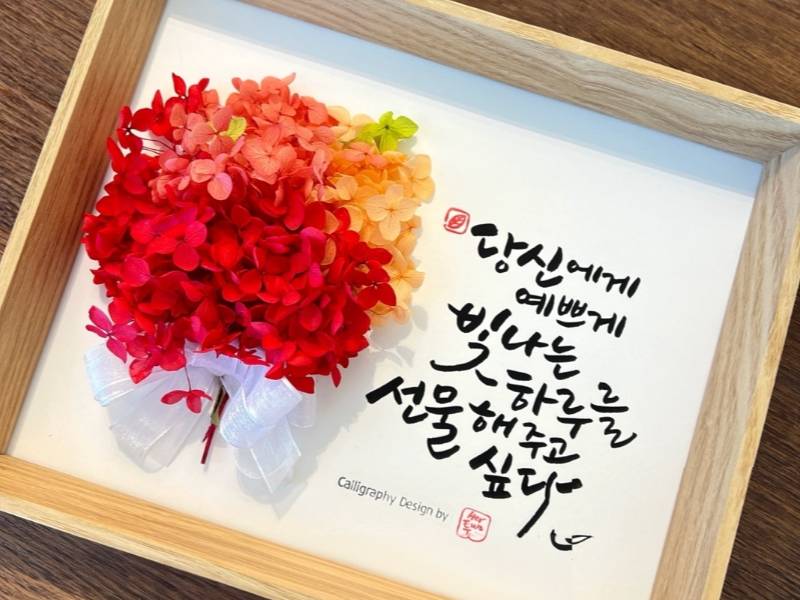 당신에게
예쁘게
빛나는
하루를
선물해주고
싶다
Calligraphy Design by